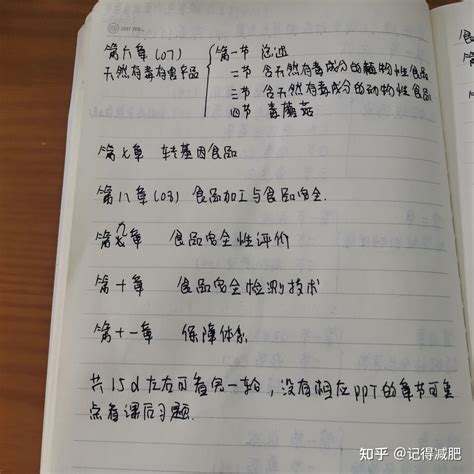 第六章(07) 第一节 总述
天然有毒有害产品 二节 含天然有毒成分的植物性食品
三节 含天然有毒成分的动物性食品
四节 毒蘑菇
第七章 转基因食品
第八章(03) 食品加工与食品安全.
第九章 食品安全性评价
第十章 食品安全检测技术
第十一章 保障体系
共15d左右可看完一轮,没有相应PPT的章节可重
点看课后习题.
知乎 @记得减肥